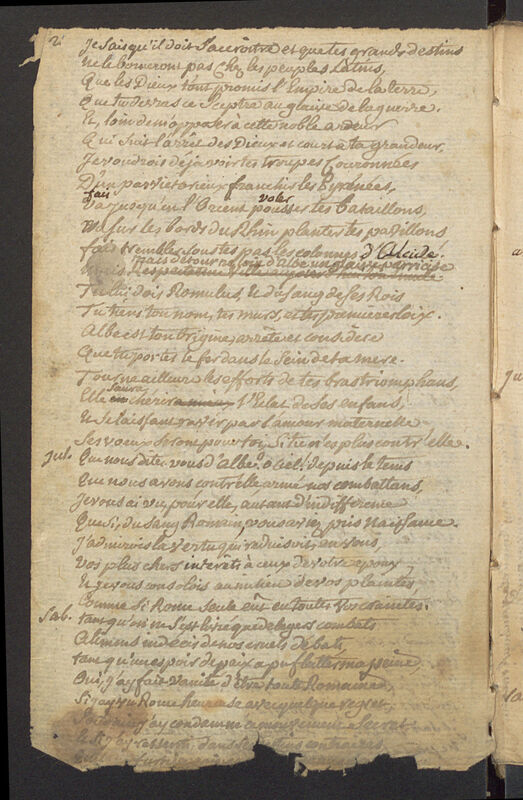 2.
Je Sais qu'il doit S'accroitre et que tes grands destins
ne le borneront pas chez les peuples Latins,
Que les Dieux t'ont promis l'Empire de la terre,
Que tu verras ce Sceptre au glaive de la guerre.
Et, loin de m'opposer à cette noble ardeur
Qui Suit l'arrêt des Dieux et court à ta grandeur,
Je voudrois déja voir tes troupes Couronnées
D'un pas victorieux franchir les Pyrénées,
fais
Va jusqu'en l'Orient pousser tes bataillons,
voler
Va Sur les bords du Rhin planter tes pavillons
fais trembler Sous tes pas les colonnes d'Alcide.
mais détourne loin d'Albe un glaive parricide
mais Respecte une Ville
Tu lui dois Romulus, & du Sang de Ses Rois
Tu tiens ton nom, tes murs, et tes premieres loix.
Albe est ton Origine arrête et considere
Que tu portes le fer dans le Sein de ta mere.
Tourne ailleurs les efforts de tes bras triomphans,
Saura
Elle cherir mieux l'Eclat de Ses enfans,
& Se laissant ravir par l'amour maternelle
Ses voeux Seront pour toi Si tu n'es plus contr'elle.
Jul. Que nous dites-vous d'Albe, o ciel! depuis le tems
Que nous avons contr'elle armé nos combattans,
Je vous ai vu, pour elle, autant d'indifference
Que Si, du Sang Romain, vous aviez pris Naissance.
J'admirois la vertu qui réduisoit, en vous,
vos plus chers interêts à ceux de votre epoux,
& je vous consolois au milieu de vos plaintes,
Comme Si Rome Seule eût eu toutes vos craintes.
Sab. tant qu'on ne S'est livré que de legers combats
tant qu'un espoir de paix a pu flatter ma peine,
Oui, j'ay fait vanité d'être toute Romaine,
Si j'ay vu Rome heureuse avec quelque regret,
Soudain j'ay condamné ce mouvement Secret